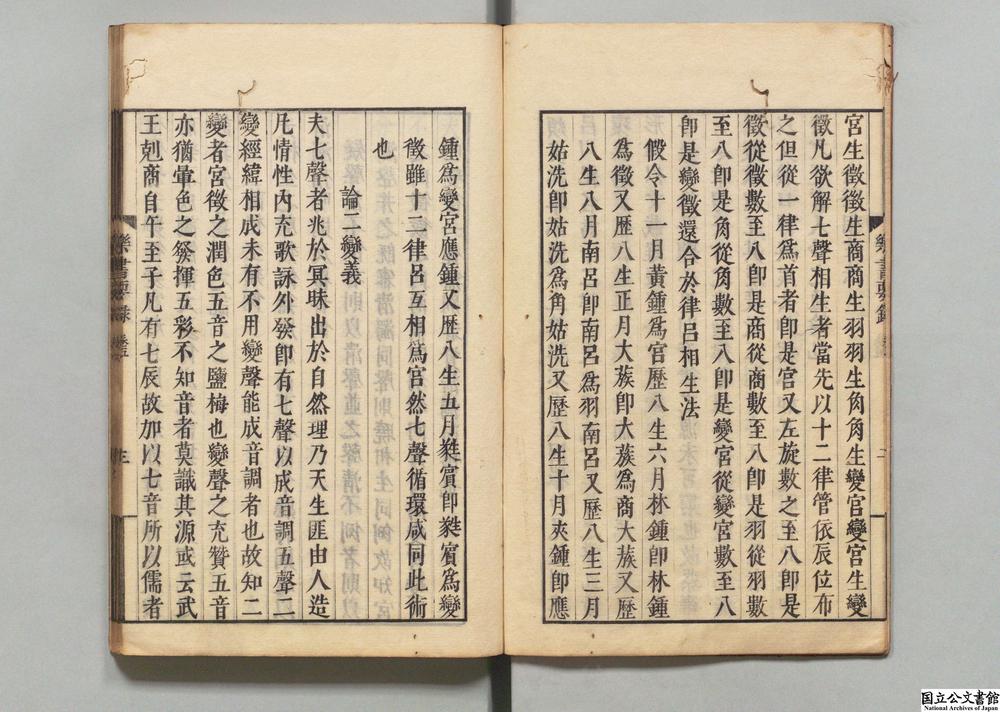 宮生徵徵生商商生羽羽生角角生變宮變宮生變
徵凡欲解七聲相生者當先以十二律管依辰位布
之但從一律爲首者卽是宮又左旋數之至八卽是
徵從徵數至八卽是商從商數至八卽是羽從羽數
至八卽是角從角數至八卽是變宮從變宮數至八
卽是變徵還合於律呂相生法
假令十一月黃鍾爲宮歷八生六月林鍾卽林鍾
爲徵又歷八生正月大蔟卽大蔟爲商大蔟又歷
八生八月南呂卽南呂爲羽南呂又歷八生三月
姑洗卽姑洗爲角姑洗又歷八生十月夾鍾卽應
鍾爲變宮應鍾又歷八生五月蕤賓卽蕤賓爲變
徵雖十二律呂互相爲宮然七聲循環咸同此術
也
論二變義
夫七聲者兆於冥昧出於自然理乃天生匪由人造
凡情性內充歌詠外發卽有七聲以成音調五聲二
變經緯相成未有不用變聲能成音調者也故知二
變者宮徵之潤色五音之鹽梅也變聲之充贊五音
亦猶暈色之發揮五彩不知音者莫識其源或云武
王剋商自午至子凡有七辰故加以七音所以儒者
樂書要錄 卷五
三
国立公文書館
National Archives of Japan